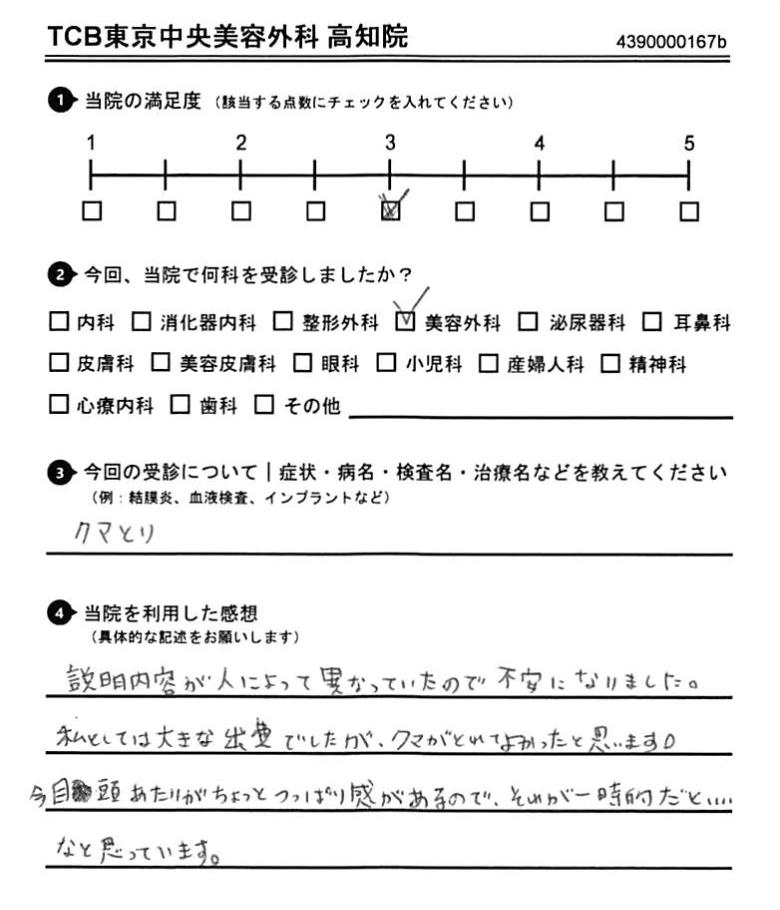 TCB東京中央美容外科 高知院 4390000167b
1 当院の満足度 （該当する点数にチェックを入れてください）
1 2 3 4 5
2 今回、当院で何科を受診しましたか？
内科 消化器内科 整形外科 美容外科 泌尿器科 耳鼻科
皮膚科 美容皮膚科 眼科 小児科 産婦人科 精神科
心療内科 歯科 その他
3 今回の受診について｜症状・病名・検査名・治療名などを教えてください
（例：結膜炎、血液検査、インプラントなど）
クマとり
4 当院を利用した感想
（具体的な記述をお願いします）
説明内容が人によって異なっていたので不安になりました。
私としては大きな出費でしたが、クマがとれてよかったと思います。
今目頭あたりがちょっとつっぱり感があるので、それが一時的だと....
なと思っています。